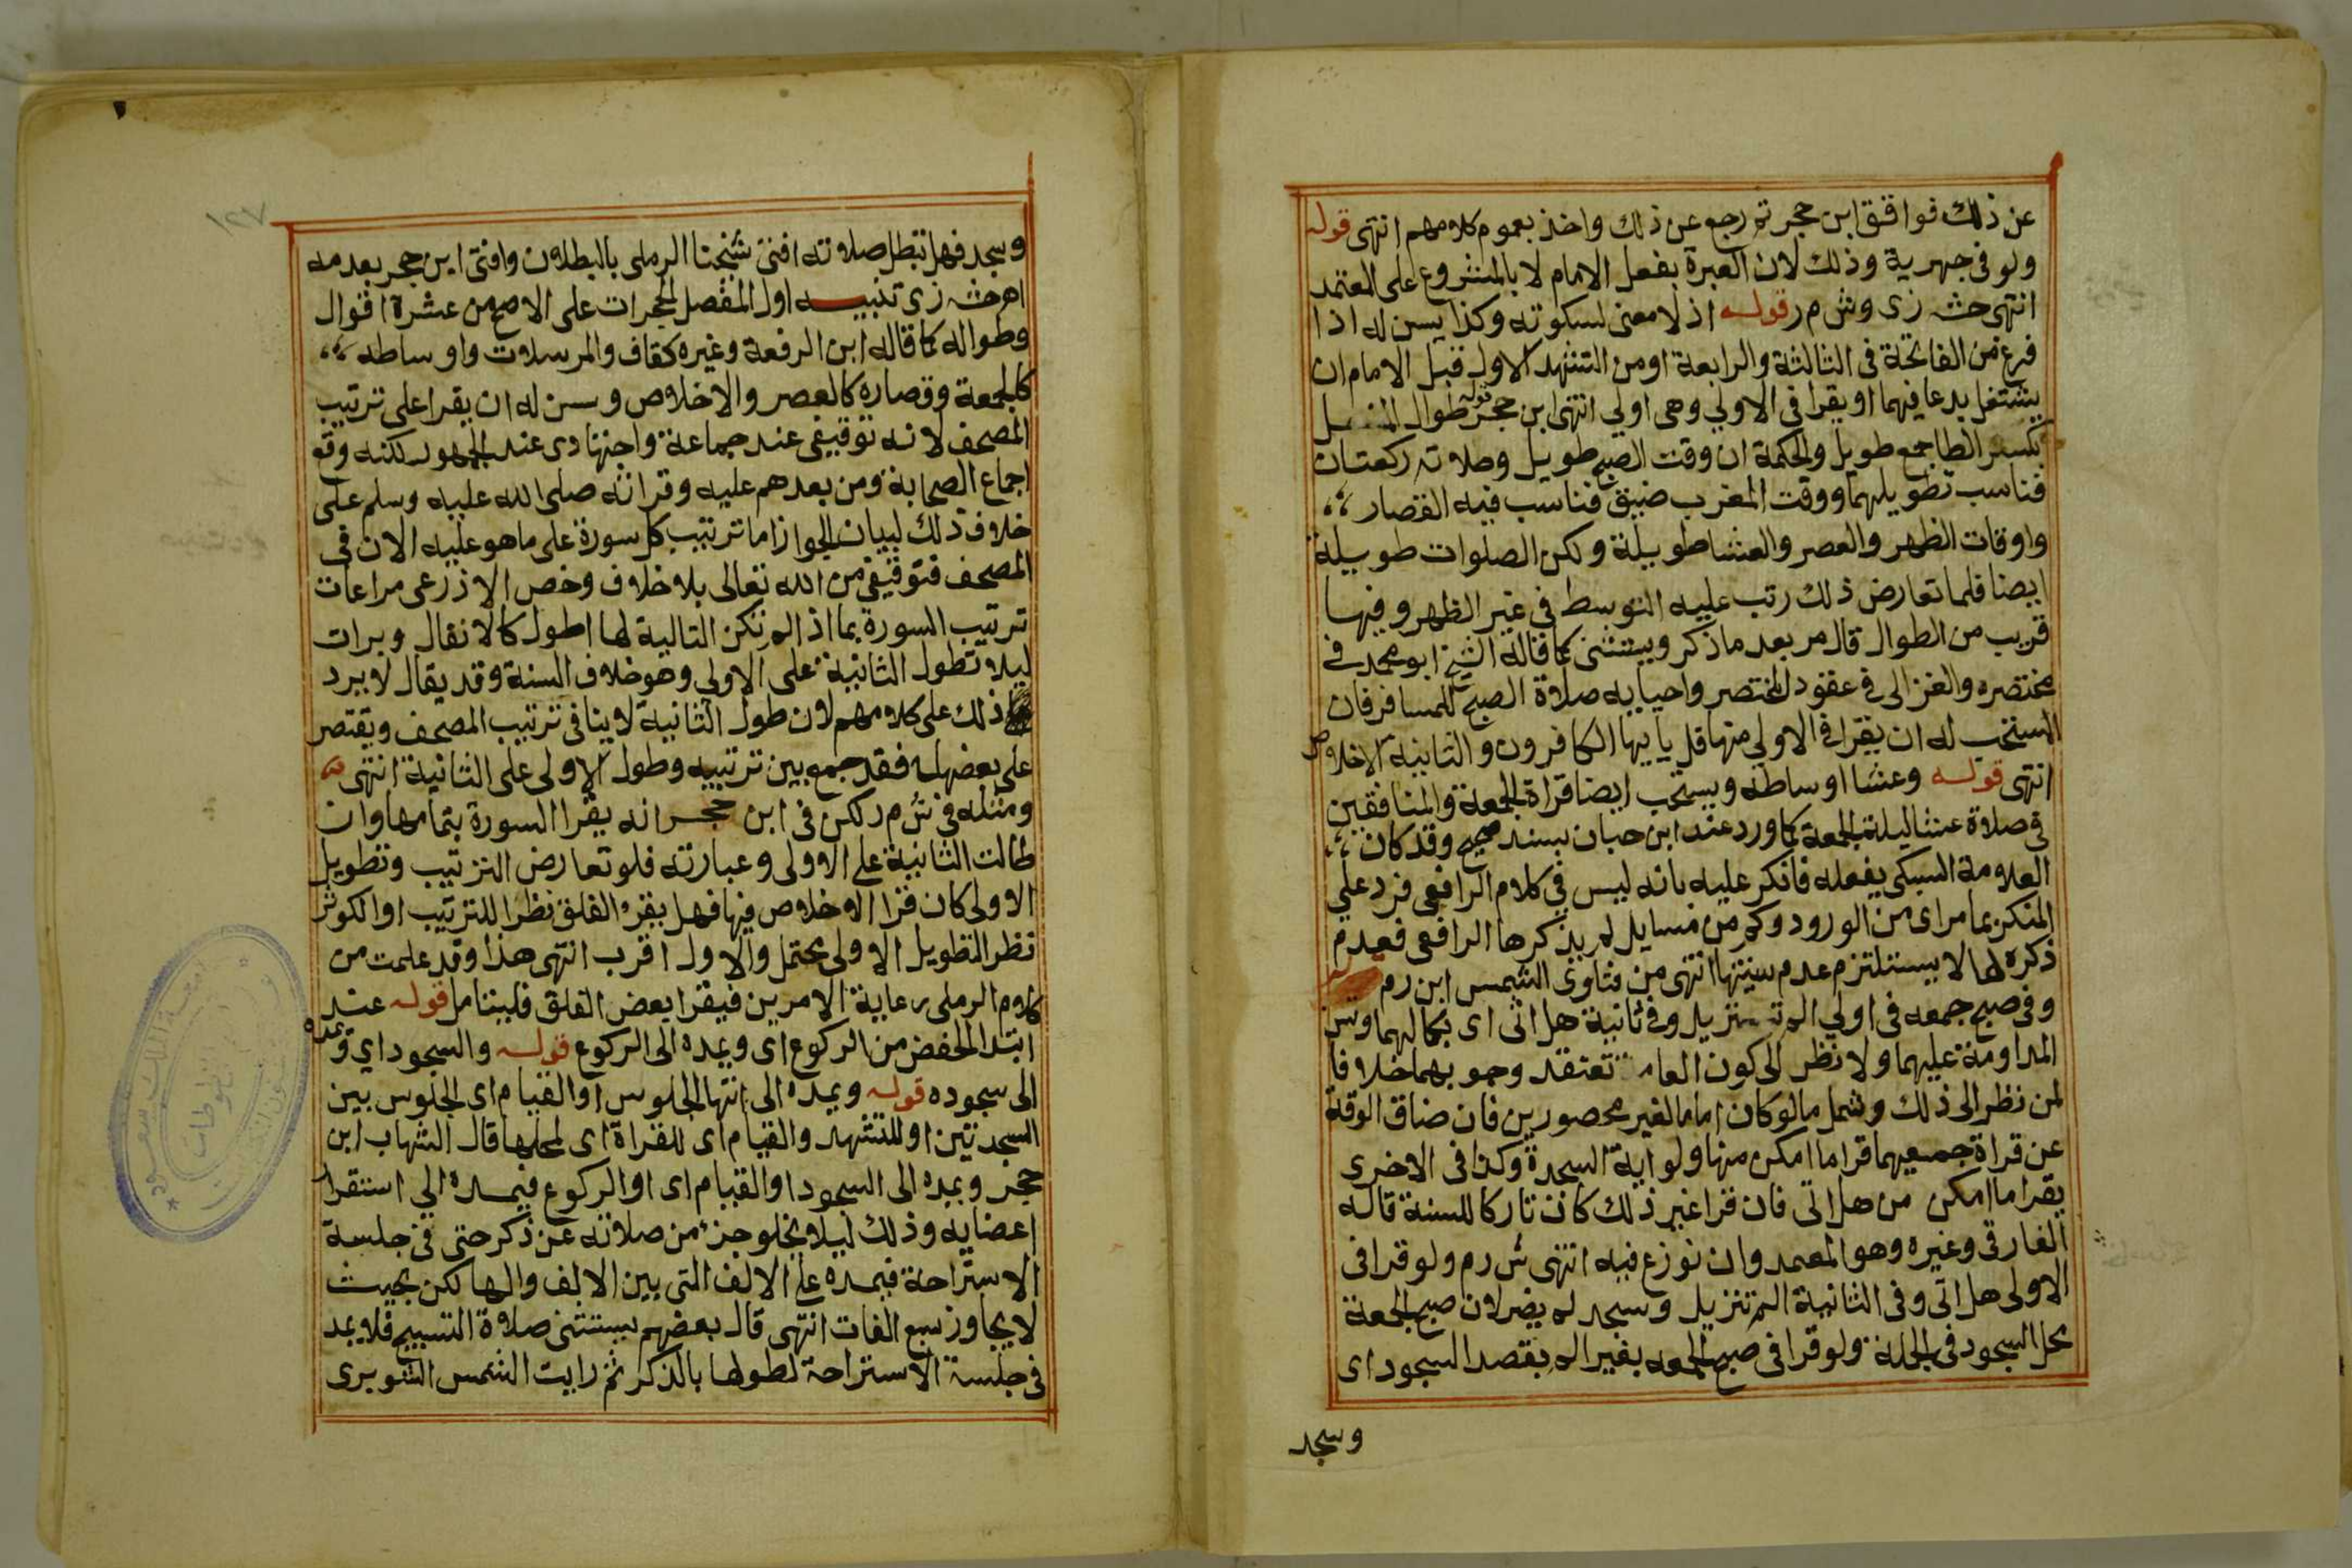 عن ذلك فوافق ابن حجر ثم رجع عن ذلك واخذ بعموم كلامهم انتهى قوله
ولو فى جهرية وذلك لان العبرة بفعل الامام لا بالمشروع على المعتمد
انتهى حش زى وش م ر قوله اذ لا معنى لسكوته وكذا يسن له اذا
فرغ من الفاتحة فى الثالثة والرابعة او من التشهد الاول قبل الامام ان
يشتغل بدعا فيهما او يقرا فى الاولي وهى اولي انتهى ابن حجر قوله طوال المفصل
بكسر الطا جمع طويل والحكمة ان وقت الصبح طويل وصلاته ركعتان
فناسب تطويلهما ووقت المغرب ضيق فناسب فيه القصار
واوقات الظهر والعصر والعشا طويلة ولكن الصلوات طويلة
ايضا فلما تعارض ذلك رتب عليه التوسط فى غير الظهر وفيها
قريب من الطوال قال مر بعد ما ذكر ويستثنى كما قاله الشيخ ابو محمد فى
مختصره والغزالى فى عقود المختصر واحيايه صلاة الصبح للمسافر فان
المستحب له ان يقرا فى الاولي منها قل يايها الكافرون والثانية الاخلاص
انتهى قوله وعشا اوساطه ويستحب ايضا قراة الجمعة والمنافقين
فى صلاة عشا ليلة الجمعة كما ورد عند ابن حبان بسند صحيح وقد كان
العلامة السبكى يفعله فانكر عليه بانه ليس فى كلام الرافعى فرد علي
المنكر بما مر اى من الورود وكم من مسايل لم يذكرها الرافعى فعدم
ذكره لها لا يستلزم عدم سنيتها انتهى من فتاوى الشمس ابن رم
وفى صبح جمعه فى اولي الم تنزيل وفى ثانية هل اتى اى بكمالهما وتسن
المداومة عليهما ولا نظر الى كون العامة تعتقد وجوبهما خلافا
لمن نظر الى ذلك وشمل ما لو كان اماما لغير محصورين فان ضاق الوقت
عن قراة جميعهما قرا ما امكن منها ولو اية السجدة وكذا فى الاخرى
يقرا ما امكن من هل اتى فان قرا غير ذلك كان تاركا للسنة قاله
الفارقى وغيره وهو المعتمد وان نوزع فيه انتهى ش رم ولو قرا فى
الاولى هل اتى وفى الثانية الم تنزيل وسجد لم يضر لان صبح الجمعة
محل السجود فى الجملة ولو قرا فى صبح الجمعه بغير الم بقصد السجود اى
وسجد
وسجد فهل تبطل صلاته افتى شيخنا الرملى بالبطلان وافتى ابن حجر بعدمه
اه حش زى تنبيه اول المفصل الحجرات على الاصح من عشرة اقوال
وطواله كما قاله ابن الرفعة وغيره كقاف والمرسلات واوساطه
كالجمعة وقصاره كالعصر والاخلاص وسن له ان يقرا على ترتيب
المصحف لانه توقيفى عند جماعة واجتهادى عند الجمهور لكنه وقع
اجماع الصحابة ومن بعدهم عليه وقراته صلى الله عليه وسلم على
خلاف ذلك لبيان الجواز اما ترتيب كل سورة على ما هو عليه الان فى
المصحف فتوقيفى من الله تعالى بلا خلاف وخص الاذرعى مراعات
ترتيب السورة بما اذا لم تكن التالية لها اطول كالانفال وبرات
ليلا تطول الثانية على الاولي وهو خلاف السنة وقد يقال لا يرد
ذلك على كلامهم لان طول الثانية لا ينافى ترتيب المصحف ويقتصر
على بعضها فقد جمع بين ترتيبه وطول الاولى على الثانية انتهى
ومثله فى ش م ر لكن فى ابن حجر انه يقرا السورة بتمامها وان
طالت الثانية على الاولى وعبارته فلو تعارض الترتيب وتطويل
الاولى كان قرا الاخلاص فيها فهل يقره الفلق نظرا للترتيب او الكوثر
نظر التطويل الاولى يحتمل والاول اقرب انتهى هذا وقد علمت من
كلام الرملى رعاية الامرين فيقرا بعض الفلق فليتامل قوله عند
ابتدا لخفض من الركوع اى ويمده الى الركوع قوله والسجود اي ويمده
الى سجوده قوله ويمده الى انتها الجلوس او القيام اى الجلوس بين
السجدتين او للتشهد والقيام اى للقراة اى لمحلها قال الشهاب ابن
حجر ويمده الى السجود او القيام اى او الركوع فيمده الي استقرار
اعضايه وذلك ليلا يخلو جزء من صلاته عن ذكر حتى فى جلسة
الاستراحة فيمده على الالف التى بين الالف والها لكن بحيث
لا يجاوز سبع الفات انتهى قال بعضهم يستثنى صلاة التسبيح فلا يمد
فى جلسة الاستراحة لطولها بالذكر ثم رايت الشمس الشوبرى